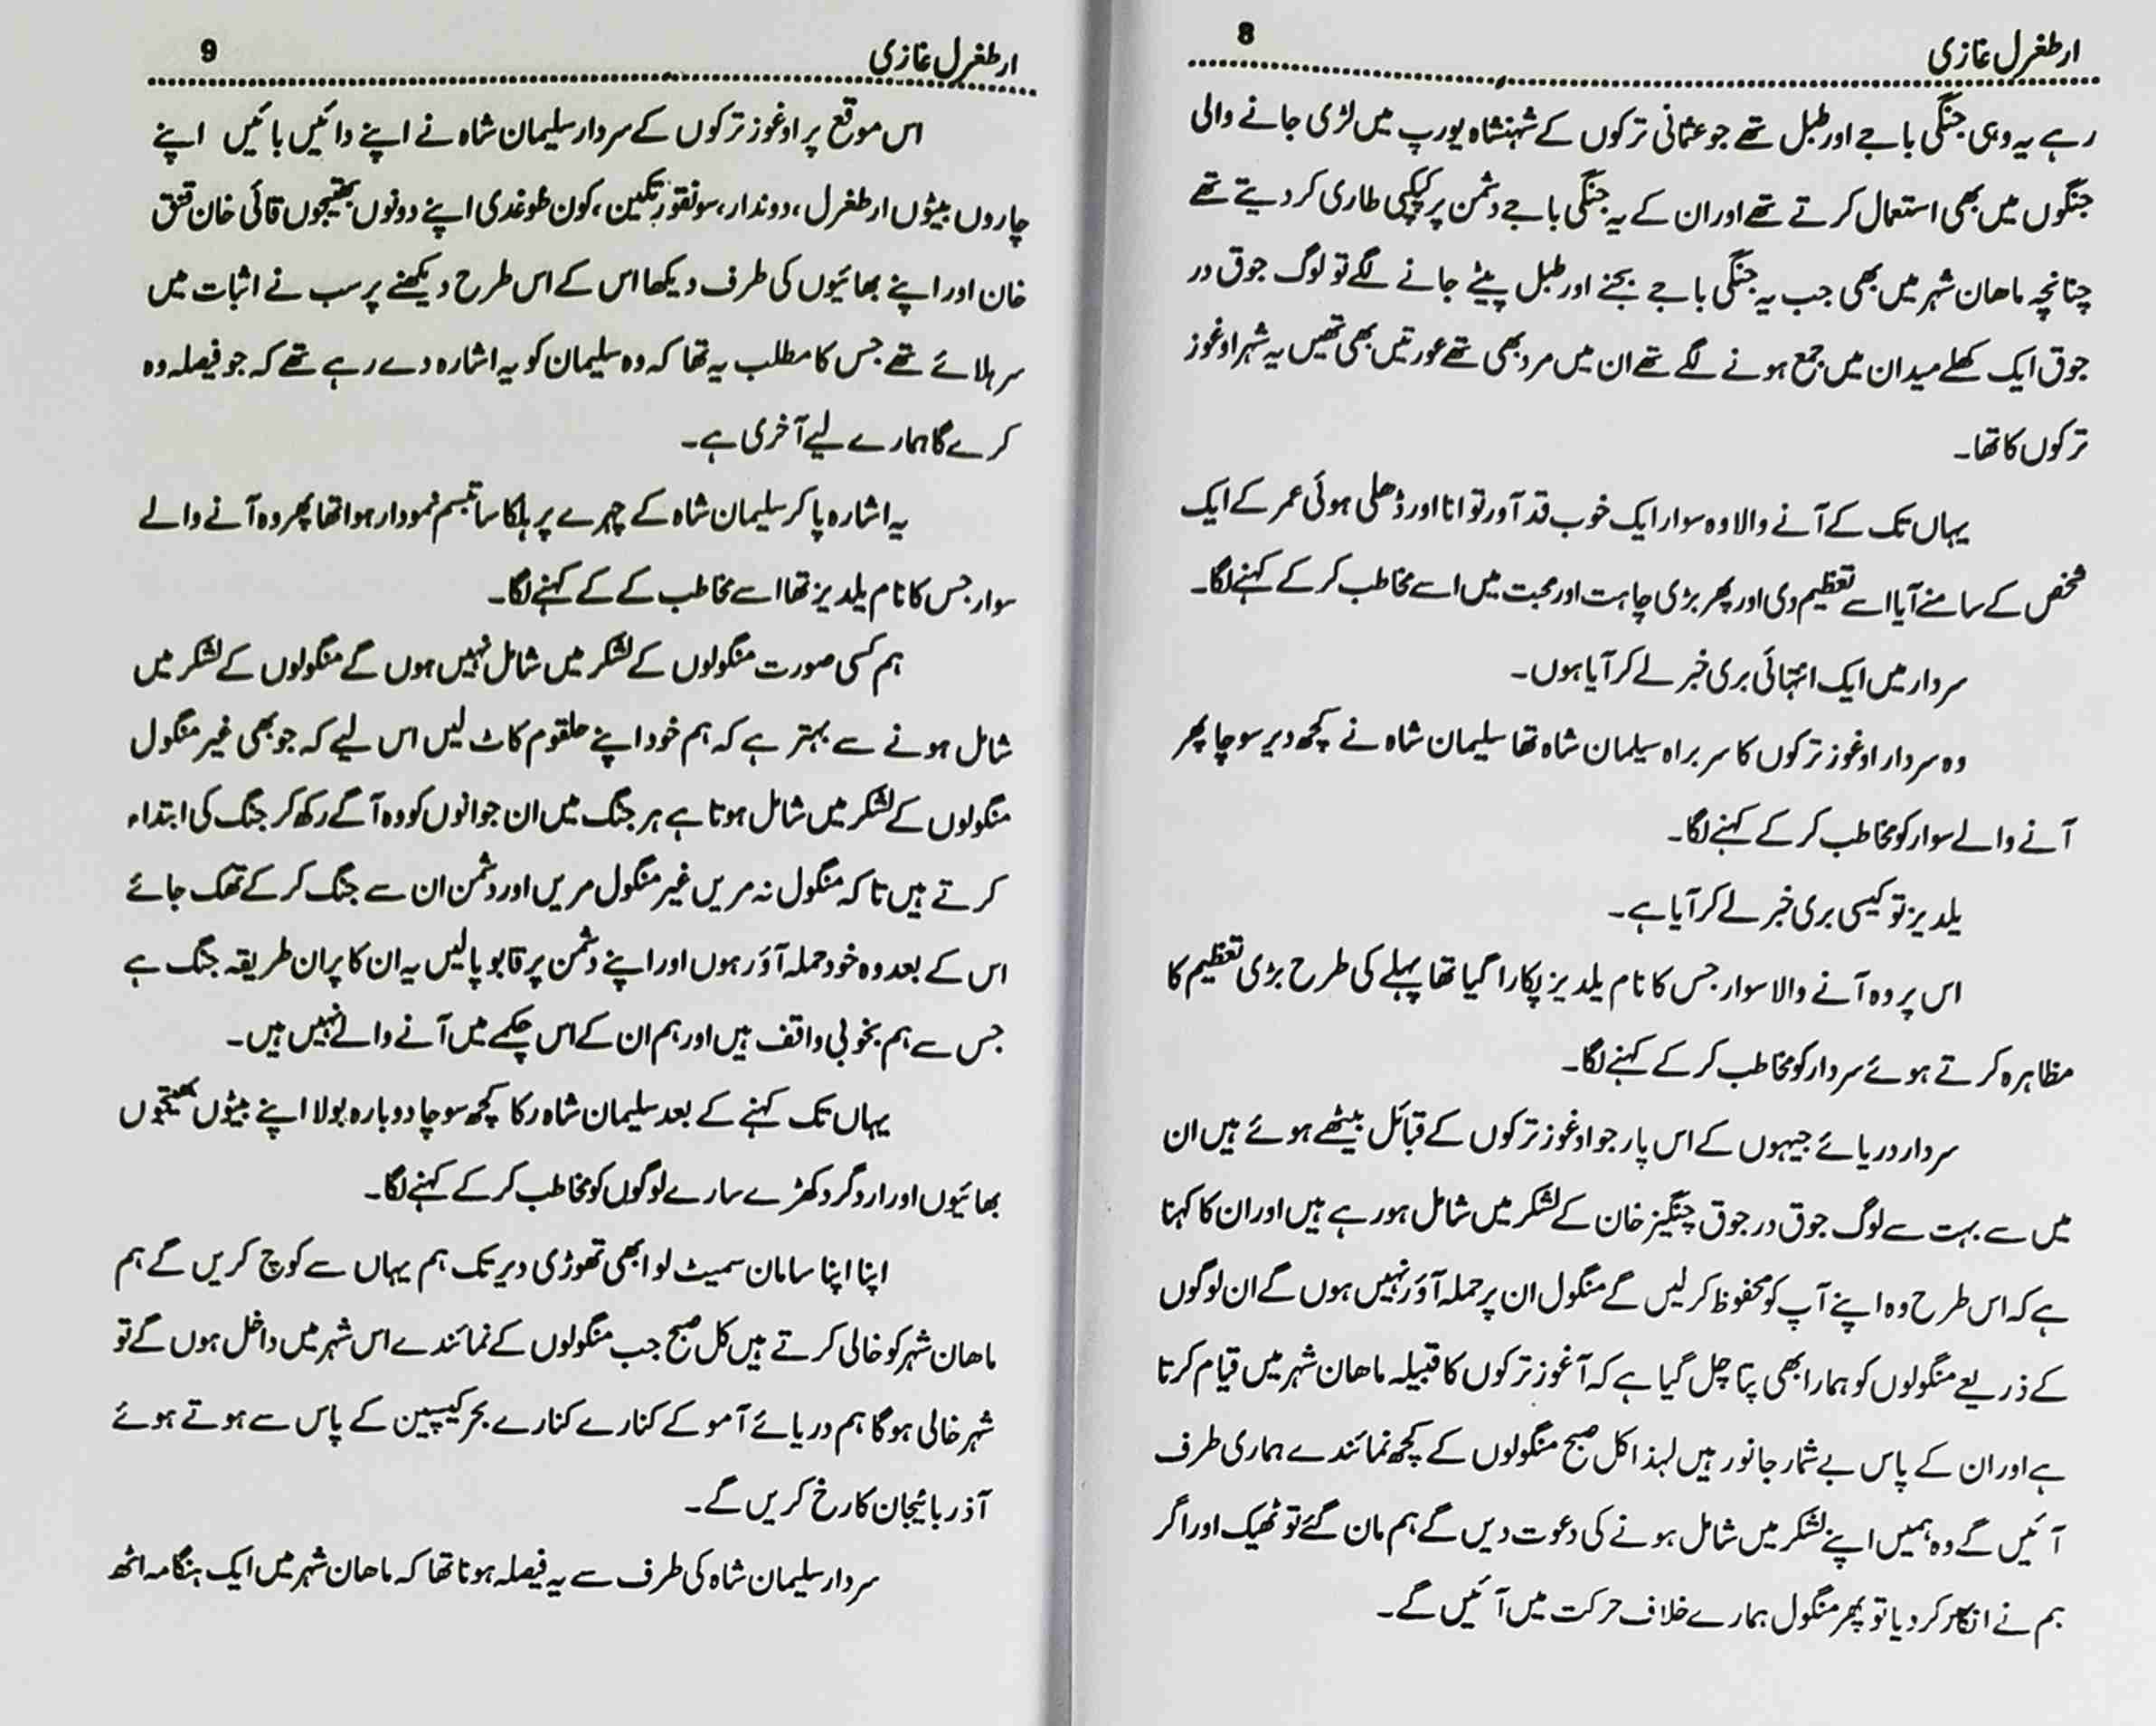 ارطغرل غازی
8
رہے یہ وہی جنگی باجے اور طبل تھے جو عثمانی ترکوں کے شہنشاہ یورپ میں لڑی جانے والی
جنگوں میں بھی استعمال کرتے تھے اور ان کے یہ جنگی باجے دشمن پر کپکپی طاری کر دیتے تھے
چنانچہ ماھان شہر میں بھی جب یہ جنگی باجے بجنے اور طبل پیٹے جانے لگے تو لوگ جوق در
جوق ایک کھلے میدان میں جمع ہونے لگے تھے ان میں مرد بھی تھے عورتیں بھی تھیں یہ شہر اوغوز
ترکوں کا تھا۔
یہاں تک کے آنے والا وہ سوار ایک خوب قد آور توانا اور ڈھلی ہوئی عمر کے ایک
شخص کے سامنے آیا اسے تعظیم دی اور پھر بڑی چاہت اور محبت میں اسے مخاطب کر کے کہنے لگا۔
سردار میں ایک انتہائی بری خبر لے کر آیا ہوں۔
وہ سردار اوغوز ترکوں کا سربراہ سیلمان شاہ تھا سلیمان شاہ نے کچھ دیر سوچا پھر
آنے والے سوار کو مخاطب کر کے کہنے لگا۔
یلدیز تو کیسی بری خبر لے کر آیا ہے۔
اس پر وہ آنے والا سوار جس کا نام یلدیز پکارا گیا تھا پہلے کی طرح بڑی تعظیم کا
مظاہرہ کرتے ہوئے سردار کو مخاطب کر کے کہنے لگا۔
سردار دریائے جیہوں کے اس پار جو اوغوز ترکوں کے قبائل بیٹھے ہوئے ہیں ان
میں سے بہت سے لوگ جوق در جوق چنگیز خان کے لشکر میں شامل ہو رہے ہیں اور ان کا کہنا
ہے کہ اس طرح وہ اپنے آپ کو محفوظ کر لیں گے منگول ان پر حملہ آؤر نہیں ہوں گے ان لوگوں
کے ذریعے منگولوں کو ہمارا بھی پتا چل گیا ہے کہ آغوز ترکوں کا قبیلہ ماھان شہر میں قیام کرتا
ہے اور ان کے پاس بے شمار جانور ہیں لہذا کل صبح منگولوں کے کچھ نمائندے ہماری طرف
آئیں گے وہ ہمیں اپنے لشکر میں شامل ہونے کی دعوت دیں گے ہم مان گئے تو ٹھیک اور اگر
ہم نے انکار کر دیا تو پھر منگول ہمارے خلاف حرکت میں آئیں گے۔
ارطغرل غازی
9
اس موقع پر اوغوز ترکوں کے سردار سلیمان شاہ نے اپنے دائیں بائیں اپنے
چاروں بیٹوں ارطغرل، دوندار، سونقور تکین، کون طوغدی اپنے دونوں بھتیجوں قائی خان قتق
خان اور اپنے بھائیوں کی طرف دیکھا اس کے اس طرح دیکھنے پر سب نے اثبات میں
سر ہلائے تھے جس کا مطلب یہ تھا کہ وہ سلیمان کو یہ اشارہ دے رہے تھے کہ جو فیصلہ وہ
کرے گا ہمارے لیے آخری ہے۔
یہ اشارہ پا کر سلیمان شاہ کے چہرے پر ہلکا سا تبسم نمودار ہوا تھا پھر وہ آنے والے
سوار جس کا نام یلدیز تھا اسے مخاطب کے کے کہنے لگا۔
ہم کسی صورت منگولوں کے لشکر میں شامل نہیں ہوں گے منگولوں کے لشکر میں
شامل ہونے سے بہتر ہے کہ ہم خود اپنے حلقوم کاٹ لیں اس لیے کہ جو بھی غیر منگول
منگولوں کے لشکر میں شامل ہوتا ہے ہر جنگ میں ان جوانوں کو وہ آگے رکھ کر جنگ کی ابتداء
کرتے ہیں تا کہ منگول نہ مریں غیر منگول مریں اور دشمن ان سے جنگ کر کے تھک جائے
اس کے بعد وہ خود حملہ آؤر ہوں اور اپنے دشمن پر قابو پا لیں یہ ان کا پران طریقہ جنگ ہے
جس سے ہم بخوبی واقف ہیں اور ہم ان کے اس چکمے میں آنے والے نہیں ہیں۔
یہاں تک کہنے کے بعد سلیمان شاہ رکا کچھ سوچا دوبارہ بولا اپنے بیٹوں بھتیجوں
بھائیوں اور ارد گرد کھڑے سارے لوگوں کو مخاطب کر کے کہنے لگا۔
اپنا اپنا سامان سمیٹ لو ابھی تھوڑی دیر تک ہم یہاں سے کوچ کریں گے ہم
ماھان شہر کو خالی کرتے ہیں کل صبح جب منگولوں کے نمائندے اس شہر میں داخل ہوں گے تو
شہر خالی ہوگا ہم دریائے آمو کے کنارے کنارے بحر کیسپین کے پاس سے ہوتے ہوئے
آذربائیجان کا رخ کریں گے۔
سردار سلیمان شاہ کی طرف سے یہ فیصلہ ہونا تھا کہ ماھان شہر میں ایک ہنگامہ اٹھ